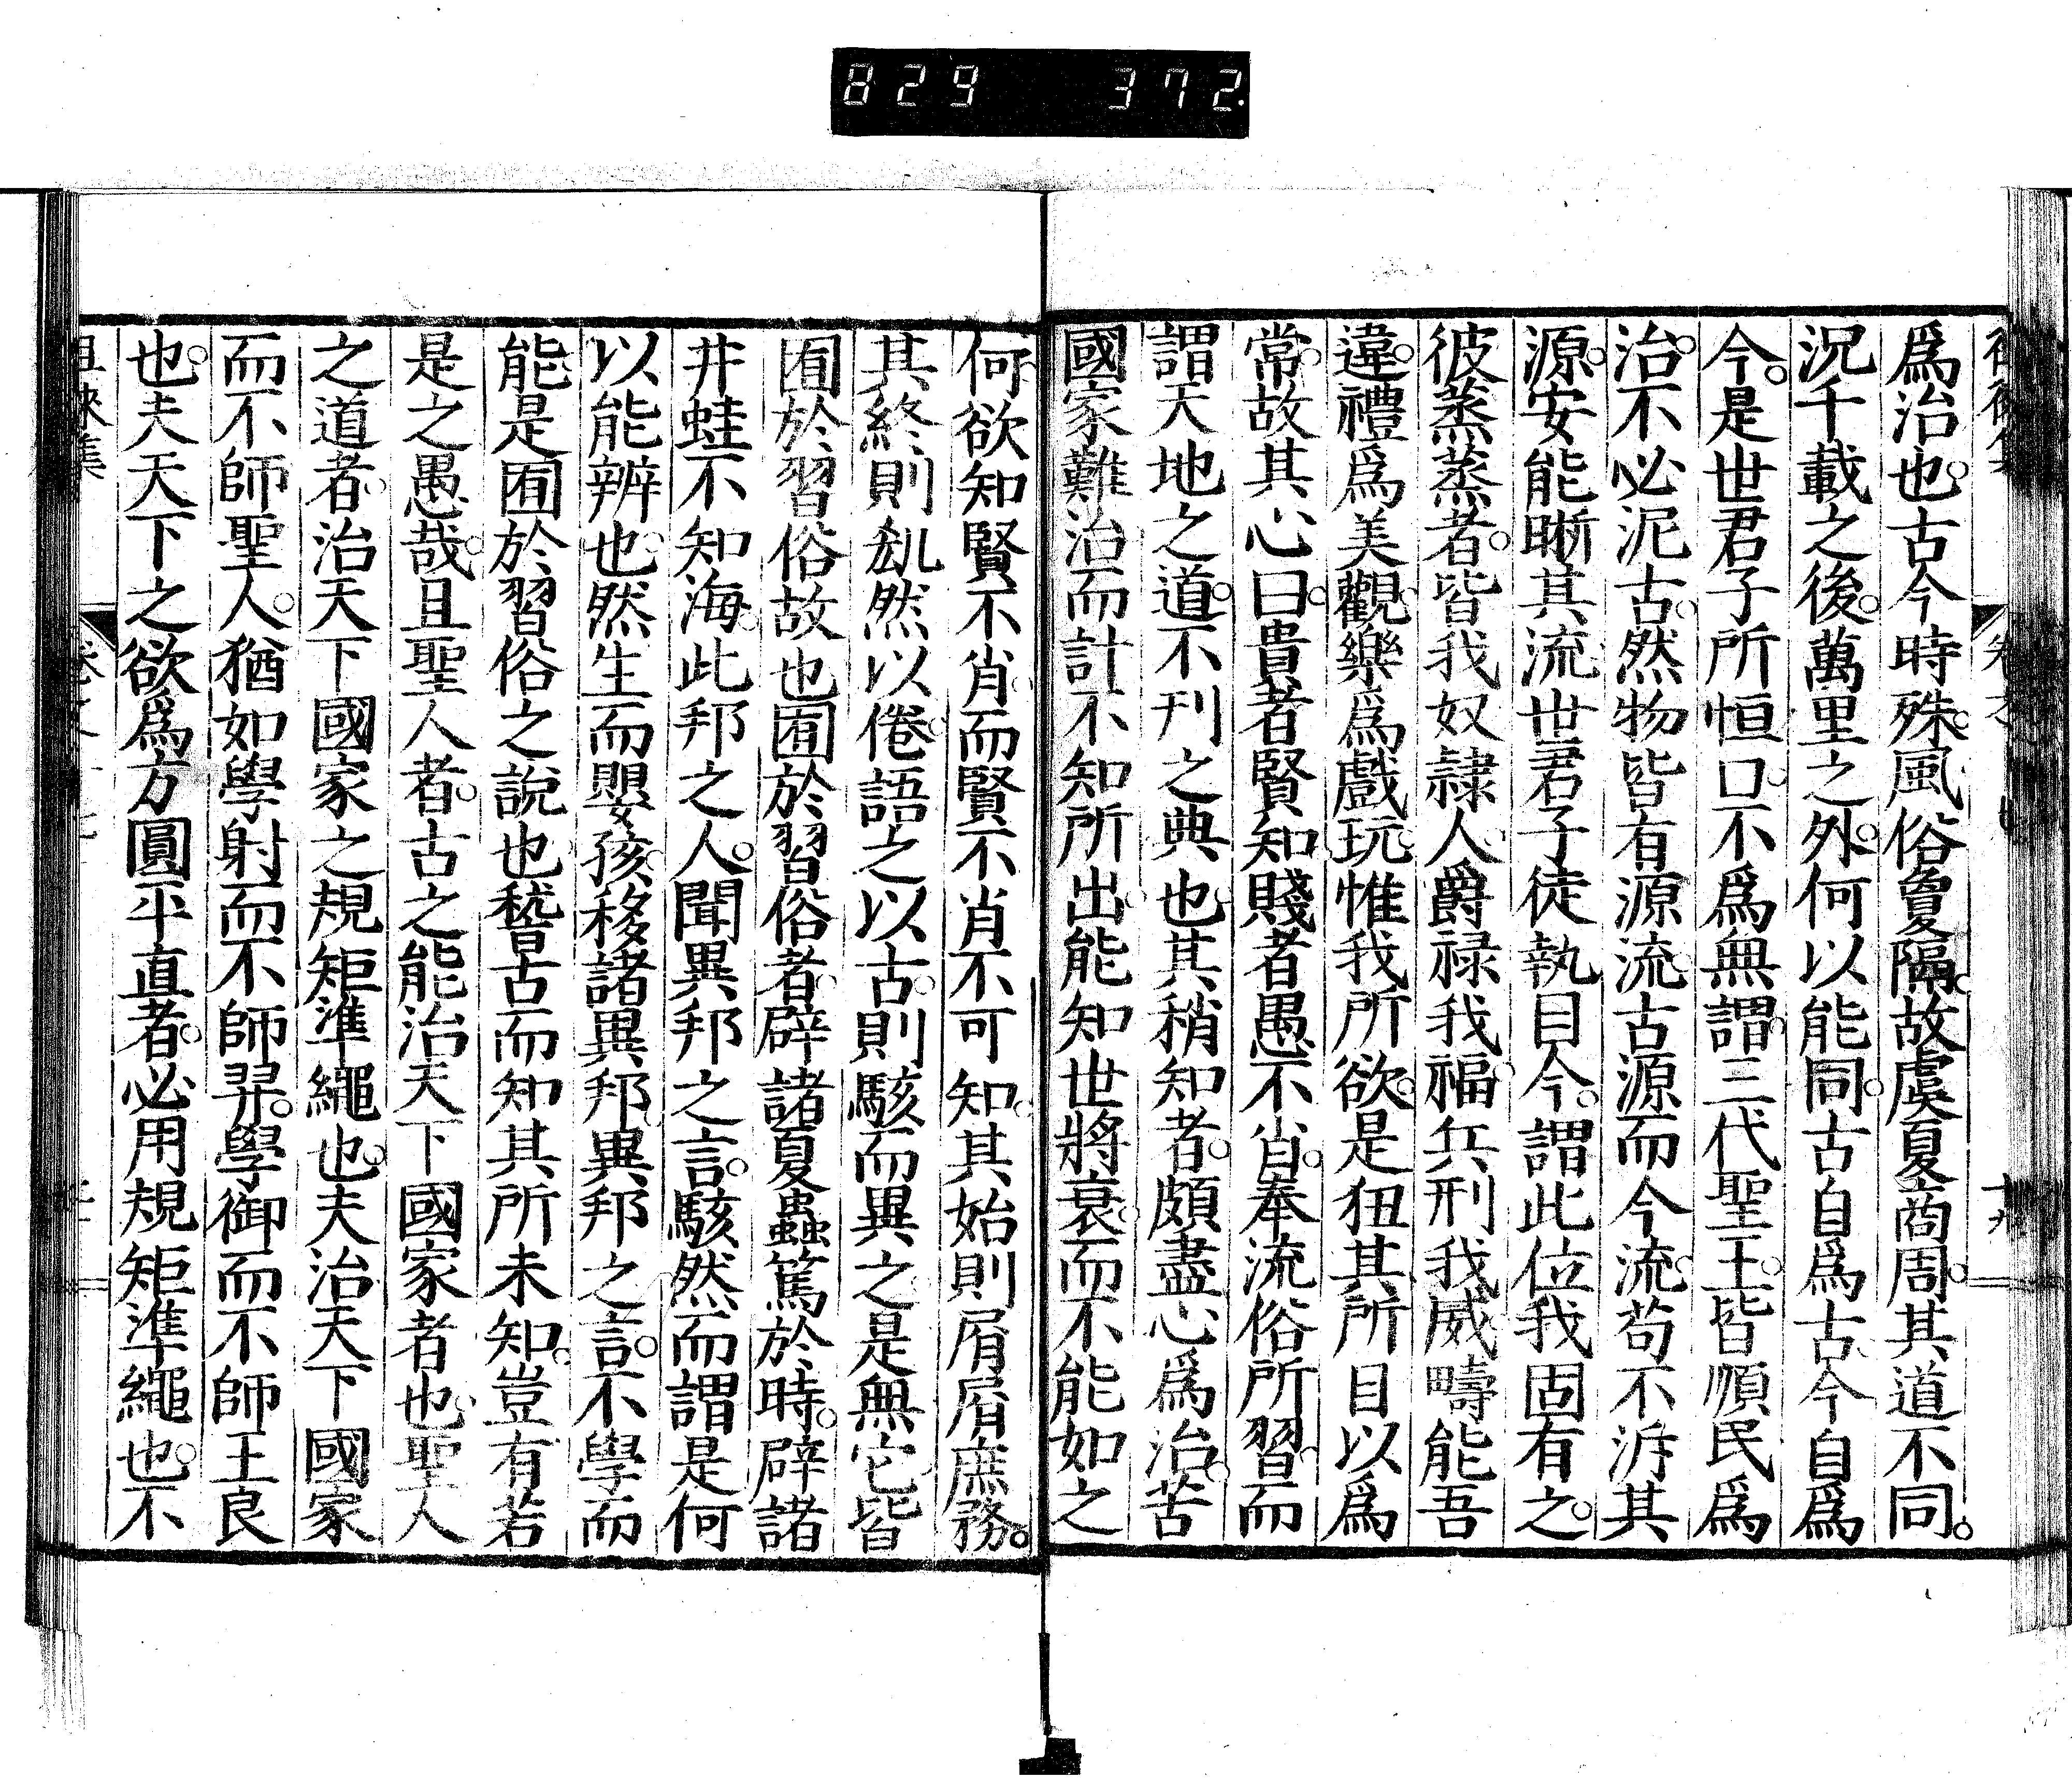 829 372
爲治也古今時殊風俗敻隔故虞夏商周其道不同
況千載之後萬里之外何以能同古自爲古今自爲
今是世君子所恒口不爲無謂三代聖王皆順民爲
治不必泥古然物皆有源流古源而今流苟不泝其
源安能晣其流世君子徒執目今謂此位我固有之
彼蒸蒸者皆我奴隷人爵祿我福兵刑我威疇能吾
違禮爲美觀樂爲戲玩惟我所欲是狃其所目以爲
常故其心曰貴者賢知賤者愚不肖奉流俗所習而
謂天地之道不刊之典也其稍知者頗盡心爲治苦
國家難治而計不知所出能知世將衰而不能如之
何欲知賢不肖而賢不肖不可知其始則屑屑庶務
其終則㞃然以倦語之以古則駭而異之是無它皆
囿於習俗故也囿於習俗者辟諸夏蟲篤於時辟諸
井蛙不知海此邦之人聞異邦之言駭然而謂是何
以能辨也然生而嬰孩移諸異邦異邦之言不學而
能是囿於習俗之說也稽古而知其所未知豈有若
是之愚哉且聖人者古之能治天下國家者也聖人
之道者治天下國家之規矩準繩也夫治天下國家
而不師聖人猶如學射而不師羿學御而不師王良
也夫天下之欲爲方圓平直者必用規矩準繩也不
徂徠集